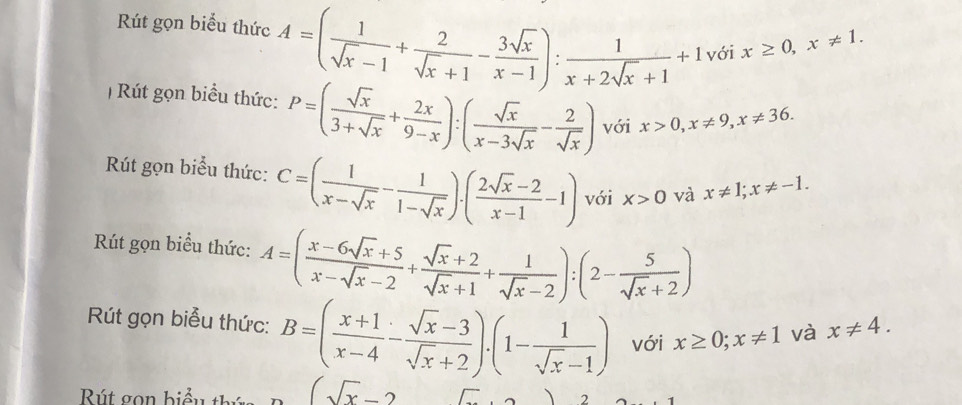 Rút gọn biểu thức A = (1/(√x − 1) + 2/(√x + 1) − 3√x/(x − 1)) : 1/(x + 2√x + 1) + 1 với x ≥ 0, x ≠ 1.
Rút gọn biểu thức: P = (√x/(3+√x) + 2x/(9−x)) : (√x/(x−3√x) − 2/√x) với x > 0, x ≠ 9, x ≠ 36.
Rút gọn biểu thức: C = (1/(x−√x) − 1/(1−√x)).((2√x−2)/(x−1) − 1) với x > 0 và x ≠ 1; x ≠ −1.
Rút gọn biểu thức: A = ((x−6√x+5)/(x−√x−2) + (√x+2)/(√x+1) + 1/(√x−2)) : (2 − 5/(√x+2))
Rút gọn biểu thức: B = ((x+1)/(x−4) − (√x−3)/(√x+2)).(1 − 1/(√x−1)) với x ≥ 0; x ≠ 1 và x ≠ 4.
Rút gọn biểu